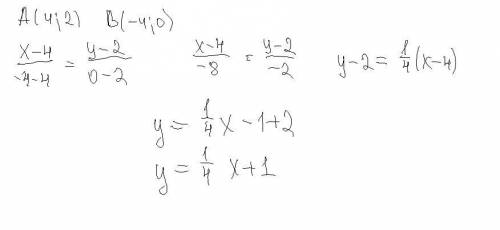 A(4;2) B(-4;0)
x-4/-4-4 = y-2/0-2 x-4/-8 = y-2/-2 y-2=1/4(x-4)
y=1/4x-1+2
y=1/4x+1